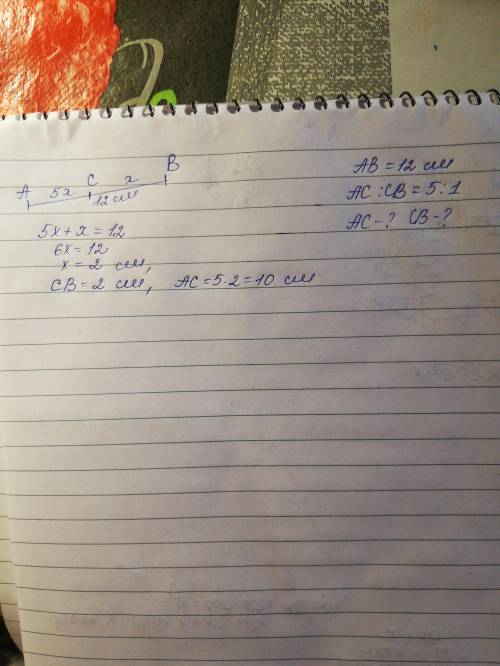 A 5x C x B
12 см
AB = 12 см
AC : CB = 5 : 1
AC - ? CB - ?
5x + x = 12
6x = 12
x = 2 см,
CB = 2 см, AC = 5 · 2 = 10 см